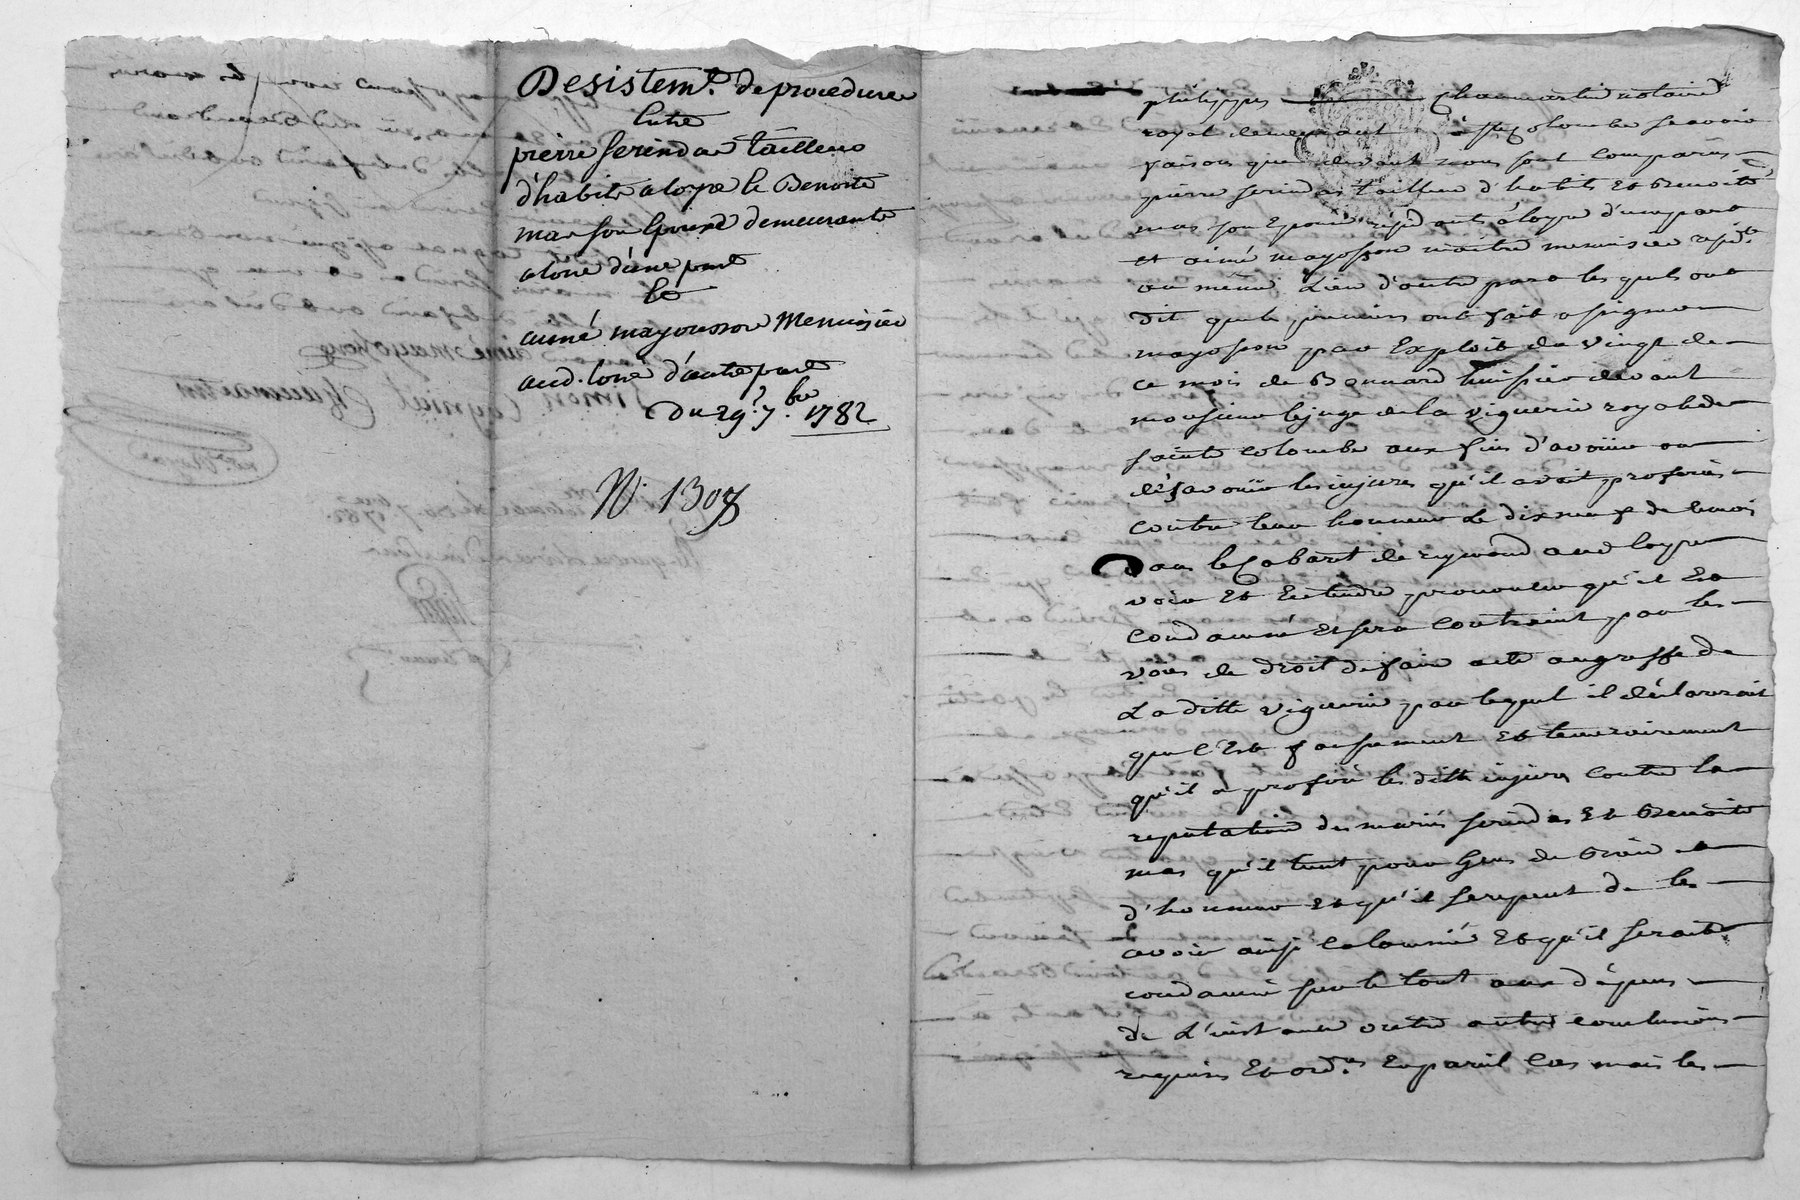 Desistem.t de procedure
Entre
pierre serindas tailleur
d'habits a loyre & Benoite
mas son Epouse demeurante
a loire d'une part
Et
aimé mayousson Menuisier
aud. loire d'autre part
Du 29.e 7.bre 1782
N. 1307
philippes Chaumartin notaire
royal demeurant à Ste colombe scavoir
faisons que devant nous sont comparus
pierre serindas tailleur d'habits Et Benoite
mas son Epouse résidants à loyre d'une part
et aimé mayosson maitre menuisier resid.t
au même Lieu d'autre part lesquels ont
dit que les premiers ont fait assigner
mayosson par Exploit du vingt de
ce mois de Bonnard huissier devant
monsieur le juge de la viguerie royale de
sainte colombe aux fins d'avoüer ou
désavoüer les injures qu'il avoit proferées
contre leur honneur Le dix neuf de ce mois
dans le Cabaret de reymond aud loyre
voir Et Entendre prononcer qu'il Est
condamné Et sera contraint par les
voies de droit de faire acte au greffe de
La ditte viguerie par lequel il déclareroit
que c'Est faussement Et temerairement
qu'il a proféré les dittes injures contre la
reputation des mariés serindas Et Benoite
mas qu'il tient pour gens de bien et
d'honneur Et qu'il se repent de les
avoir ainsi calomnié Et qu'il seroit
condamné sur le tout aux dépens
de L'instance outre autres conclusions
requises Et ord.res En pareil cas mais les